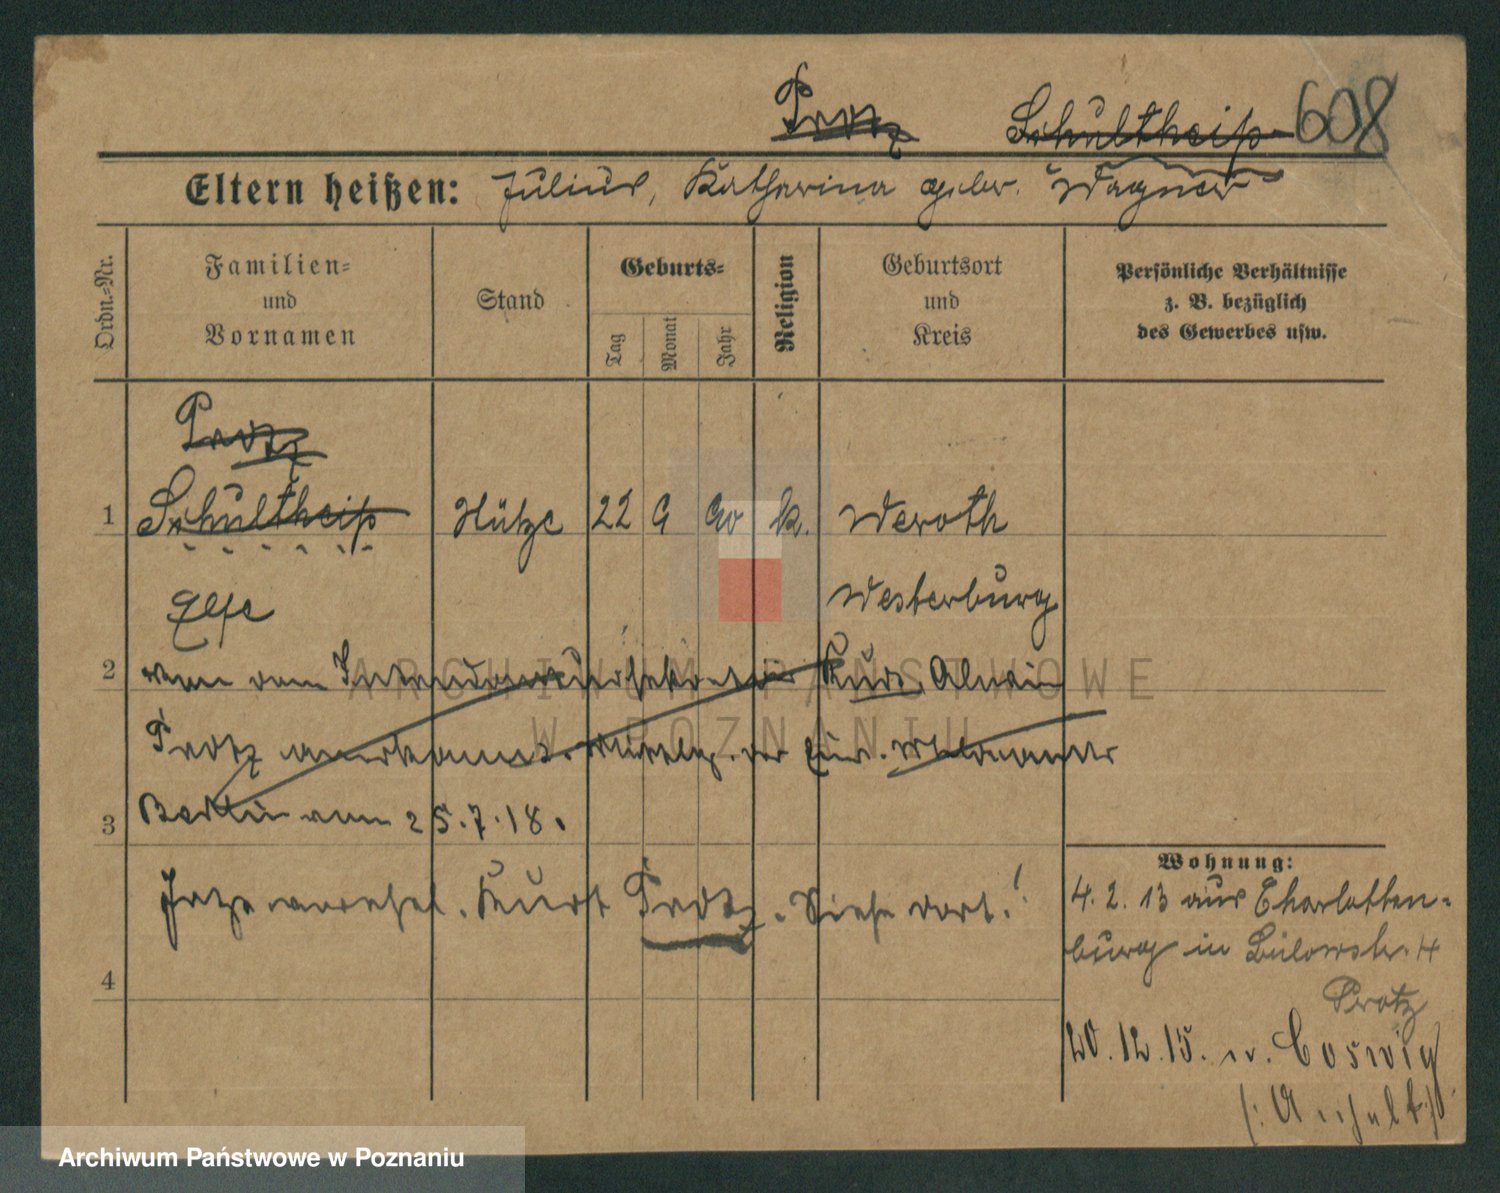 Protz Schultheiß 608
Eltern heißen: Julius, Katharina gebr. Wagner
Ordn.-Nr.
Familien-
und
Vornamen
Stand
Geburts-
Tag
Monat
Jahr
Religion
Geburtsort
und
Kreis
Persönliche Verhältnisse
z. B. bezüglich
des Gewerbes usw.
Protz
1 Schultheiß Stütze 22 9 90 k. Weroth
Else Westerburg
2 von dem Intendantur Kurt Alwin
Protz anerkannt. der
3 Berlin vom 25.7.18.
Jetzt verehel. Kurt Protz. Siehe dort!
4
Wohnung:
4. 2. 13 aus Charlotten-
burg in Bülowstr. 4
Protz
20. 12. 15. n. Coswig
(: Anhalt :)
ARCHIWUM PAŃSTWOWE
W POZNANIU
Archiwum Państwowe w Poznaniu